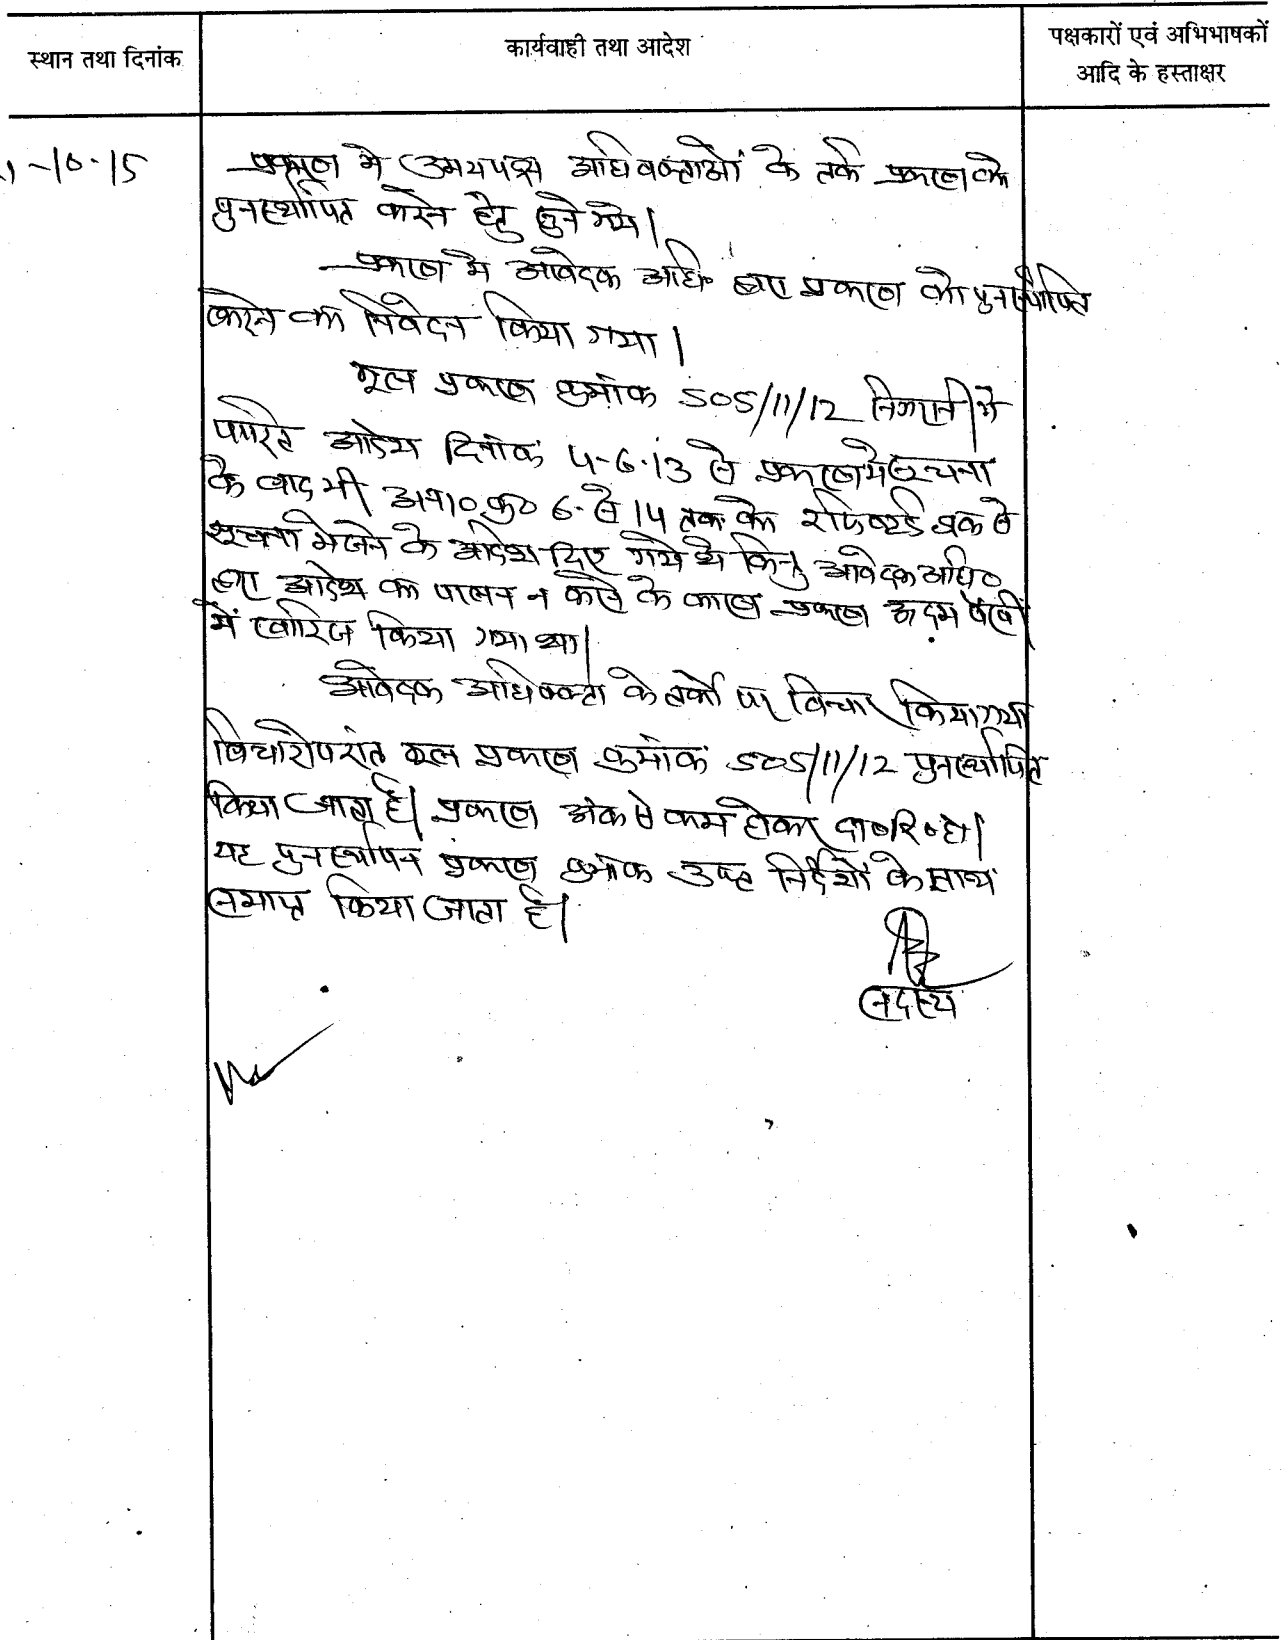 स्थान तथा दिनांक
कार्यवाही तथा आदेश
पक्षकारों एवं अभिभाषकों
आदि के हस्ताक्षर
-10-15
प्रकरण में उभयपक्ष अधिवक्ताओं के तर्क प्रकरण को
पुनर्स्थापित करने हेतु सुने गये।
प्रकरण में आवेदक अधि० द्वारा प्रकरण को पुनर्स्थापित
करने का निवेदन किया गया।
मूल प्रकरण क्रमांक 505/11/12 निगरानी में
पारित आदेश दिनांक 4-6-13 से प्रकरण में सूचना
के बाद भी अना० क्र० 6 से 14 तक को रजिस्टर्ड डाक से
सूचना भेजने के आदेश दिए गये थे किन्तु आवेदक अधि०
द्वारा आदेश का पालन न करने के कारण प्रकरण अदम पैरवी
में खारिज किया गया था।
आवेदक अधिवक्ता के तर्कों पर विचार किया गया
विचारोपरांत मूल प्रकरण क्रमांक 505/11/12 पुनर्स्थापित
किया जाता है। प्रकरण अंक से कम होकर दा०रि० हो।
यह पुनर्स्थापन प्रकरण क्रमांक उक्त निर्देशों के साथ
समाप्त किया जाता है।
सदस्य